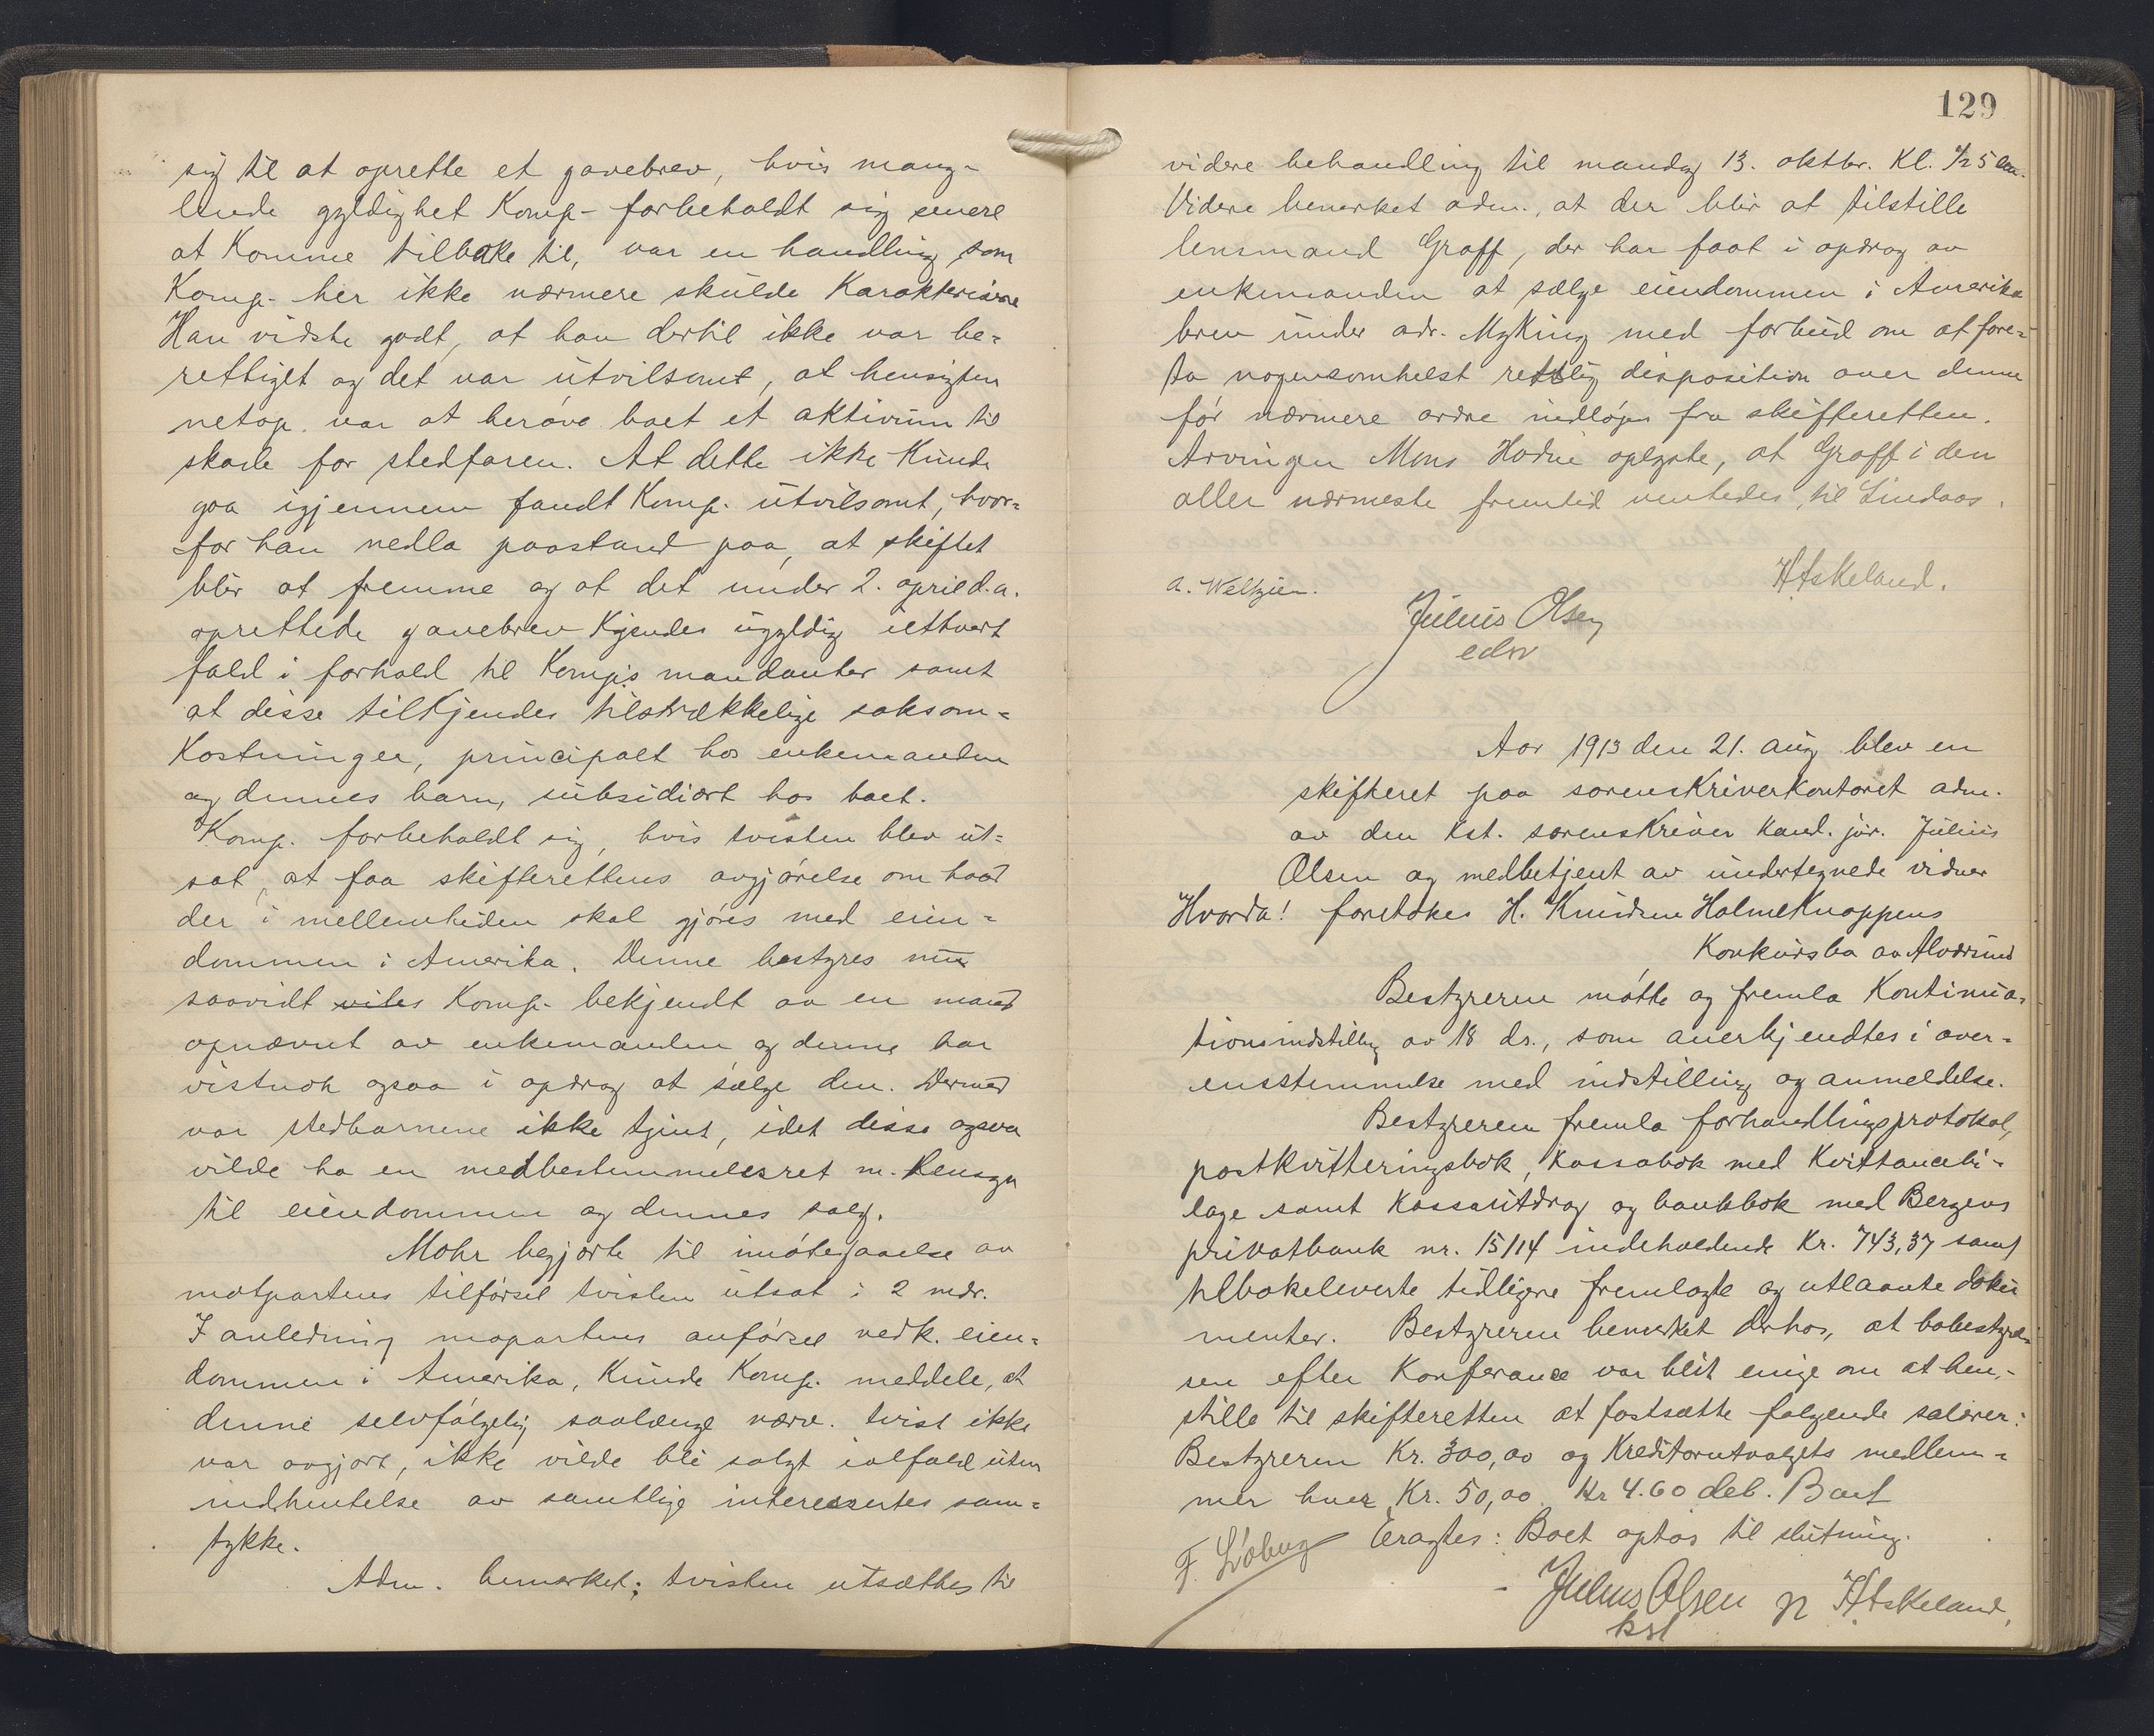 sig til at oprette et gavebrev, hvis mang-
lende gyldighet Komp- forbeholdt sig senere
at Komme tilbake til, var en handling som
Komp- her ikke nærmere skulde Karakterisere
Han vidste godt, at han dertil ikke var be-
rettiget og det var utvilsomt, at hensigten
netop var at berøve boet et aktivum til
skade for stedfaren. At dette ikke Kunde
gaa igjennem fandt Komp. utvilsomt, hvor-
for han nedla paastand paa, at skiftet
blir at fremme og at det under 2. april d.a.
oprettede gavebrev Kjendes ugyldig iethvert
fald i forhold til Komp's mandanter samt
at disse tilkjendes tilstrækkelige saksom-
Kostninger, principalt hos enkemanden
og dennes barn, subsidiært hos boet.
Komp. forbeholdt sig, hvis tvisten blev ut-
sat, at faa skifterettens avgjørelse om hvad
der i mellemtiden skal gjøres med eien-
dommen i Amerika. Denne bestyres nu
saavidt vites Komp. bekjendt av en mand
opnævnt av enkemanden og denne har
vistnok ogsaa i opdrag at sælge den. Dermed
var stedbarnene ikke tjent, idet disse ogsaa
vilde ha en medbestemmelesret m. hensyn
til eiendommen og dennes salg.
Mohr begjærte til imøtegaaelse av
motpartens tilførsel tvisten utsat i 2 mdr.
I anledning mopartens anførsel vedk. eien-
dommen i Amerika, Kunde Komp. meddele, at
denne selvfølgelig saalænge nærv. tvist ikke
var avgjort, ikke vilde bli solgt ialfald uten
indhentelse av samtlige interessertes sam-
tykke.
Adm. bemerket: tvisten utsættes til
129
videre behandling til mandag 13. oktbr. Kl. 1/2 5 em.
Videre bemerket adm., at der blir at tilstille
lensmand Graff, der har faat i opdrag av
enkemanden at sælge eiendommen i Amerika
brev under adr. Myking med forbud om at fore-
ta nogensomhelst rettslig disposition over denne
før nærmere ordre indløper fra skifteretten.
Arvingen Mons Hodne oplyste, at Graff i den
aller nærmeste fremtid ventedes til Lindaas.
A. Weltzien.
H Askeland.
Julius Olsen
edsv
Aar 1913 den 21. aug blev en
skifteret paa sorenskriverkontoret adm.
av den Kst. sorenskriver Kand. jur. Julius
Olsen og medbetjent av undertegnede vidner
Hvorda! foretokes H. Knudsen Holmeknappens
Konkursbo av Alværsund
Bestyreren møtte og fremla Kontinua-
tionsindstilling av 18 ds., som anerkjendtes i over-
ensstemmelse med indstilling og anmeldelse.
Bestyreren fremla forhandlingsprotokol,
postkvitteringsbok, Kassabok med Kvittancebi-
lage samt Kassautdrag og bankbok med Bergens
privatbank nr. 15114 indeholdende Kr. 743,37 samt
tilbakeleverte tidligere fremlagte og utlaante doku
menter. Bestyreren bemerket derhos, at bobestyrel-
sen efter Konferance var blit enige om at hen-
stille til skifteretten at fastsætte følgende salærer:
Bestyreren Kr. 300,00 og Kreditorutvalgets medlem-
mer hver Kr. 50,00 Kr 4.60 deb. Boet
Eragtes: Boet optas til slutning.
Julius Olsen
kst
H Askeland.